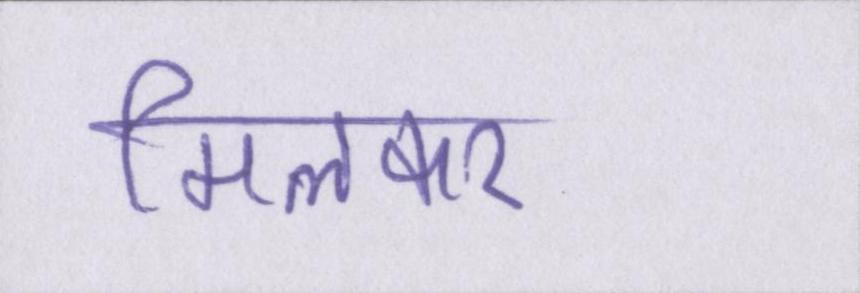 मिलकर